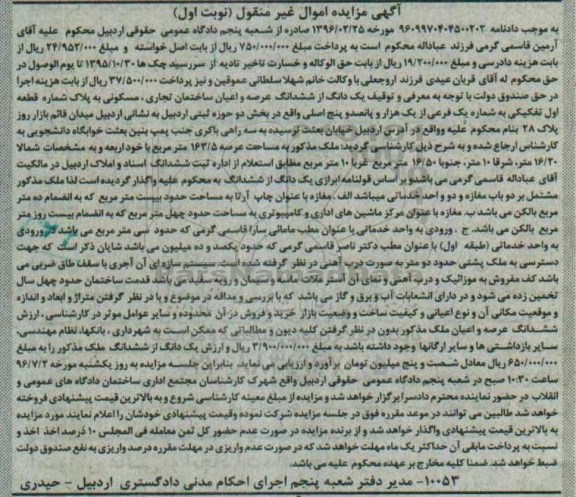 آگهی مزایده اموال غیر منقول (نوبت اول)
به موجب دادنامه ۹۶۰۹۹۷۰۴۰۴۵۰۰۲۰۲ مورخه ۱۳۹۶/۰۲/۲۵ صادره از شعبه پنجم دادگاه عمومی حقوقی اردبیل محکوم علیه آقای
آرمین قاسمی گرمی فرزند عبادالله محکوم است به پرداخت مبلغ ۷۵۰/۰۰۰/۰۰۰ ریال از بابت اصل خواسته و مبلغ ۲۴/۹۵۳/۰۰۰ ریال از
بابت هزینه دادرسی و مبلغ ۱۹/۲۰۰/۰۰۰ ریال از بابت حق الوکاله و خسارت تاخیر تادیه از سررسید چک ها ۱۳۹۵/۱۰/۳۰ تا یوم الوصول در
حق محکوم له آقای قربان عیدی فرزند اروجعلی با وکالت خانم شهلا سلطانی عموقین و نیز پرداخت ۳۷/۵۰۰/۰۰۰ ریال از بابت هزینه اجرا
در حق صندوق دولت با توجه به معرفی و توقیف یک دانگ از ششدانگ عرصه و اعیان ساختمان تجاری ، مسکونی به پلاک شماره قطعه
اول تفکیکی به شماره یک فرعی از یک هزار و پانصدو پنج اصلی واقع در بخش دو حوزه ثبتی اردبیل به نشانی اردبیل میدان قائم بازار روز
پلاک ۲۸ بنام محکوم علیه وواقع در آدرس اردبیل خیابان بعثت نرسیده به سه راهی باکری جنب پمپ بنزین بعثت خوابگاه دانشجویی به
کارشناس ارجاع شده و به شرح ذیل کارشناسی گردید: ملک مذکور به مساحت عرصه ۱۶۳/۵ متر مربع با حود اربعه و به مشخصات شمالا
۱۶/۲۰ متر، شرقا ۱۰ متر، جنوبا ۱۶/۵۰ متر غربا ۱۰ متر مربع مطابق استعلام از اداره ثبت ششدانگ اسناد و املاک اردبیل در مالکیت
آقای عبادالله قاسمی گرمی می باشدو بر اساس قولنامه ابرازی یک دانگ از ششدانگ به محکوم علیه واگذار گردیده است لذا ملک مذکور
مشتمل بر دو باب مغازه و دو واحد خدماتی میباشد الف . مغازه با عنوان چاپ آرتا به مساحت حدود بیست متر مربع که به انضمام ده متر
مربع بالکن می باشد ب. مغازه با عنوان مرکز ماشین های اداری و کامپیوتری به مساحت حدود چهل متر مربع که به انضمام بیست روز متر
مربع بالکن می باشد. ج . ورودی به واحد خدماتی با عنوان مطب مامائی سارا قاسمی گرمی که حدود سی متر مربع می باشد . ورودی
به واحد خدماتی (طبقه اول) با عنوان مطب دکتر ناصر قاسمی گرمی که حدود یکصد و ده میلیون می باشد شایان ذکر است که جهت
دسترسی به ملک پشتی حدود دو متر به صورت درب آهنی در نظر گرفته شده است. سیستم سازه ای آن آجری با سقف طاق ضربی می
باشد کف مفروش به موزائیک و درب آهنی و نمای آن آستر ملات ماسه و سیمان و رویه سفید می باشد قدمت ساختمان حدود چهل سال
تخمین زده می شود و در دارای انشعابات آب و برق و گاز می باشد که با بررسی و مداقه در موضوع و با در نظر گرفتن متراژ و ابعاد و اندازه
و موقعیت مکانی آن و نوع اعیانی و کیفیت ساخت و وضعیت بازار خرید و فروش در آن محدوده و سایر عوامل موثر در کارشناسی ، ارزش
ششدانگ عرصه و اعیان ملک مذکور بدون در نظر گرفتن کلیه دیون و مطالباتی که ممکن است به شهرداری ، بانکها، نظام مهندسی،
سایر بازداشتی ها و سایر ارگانها وجود داشته باشد به مبلغ ۳/۹۰۰/۰۰۰/۰۰۰ ریال و ارزش یک دانگ از ششدانگ ملک مذکور را به مبلغ
۶۵۰/۰۰۰/۰۰۰ ریال معادل شصت و پنج میلیون تومان برآورد و ارزیابی می نماید. بنابراین جلسه مزایده به روز یکشنبه مورخه ۹۶/۷/۲
ساعت ۱۰:۳۰ صبح در شعبه پنجم دادگاه عمومی حقوقی اردبیل واقع شهرک کارشناسان مجتمع اداری ساختمان دادگاه های عمومی و
انقلاب در حضور نماینده محترم دادسرا برگزار خواهد شد و مزایده از مبلغ معینه کارشناسی شروع و به بالاترین قیمت پیشنهادی فروخته
خواهد شد طالبین می توانند در موعد مقرره فوق در جلسه مزایده شرکت نموده وقیمت پیشنهادی خودشان را اعلام نمایند مورد مزایده
به بالاترین قیمت پیشنهادی واگذار خواهد شد و از برنده مزایده در صورت عدم حضور کل ثمن معامله فی المجلس ۱۰ درصد اخذ اخذ و
نسبت به پرداخت مابقی آن حداکثر یک ماه مهلت خواهد شد که در صورت عدم واریزی در مهلت مقرره درصد واریزی به نفع صندوق دولت
ضبط خواهد شد. ضمنا کلیه مخارج بر عهده محکوم علیه می باشد.
۱۰۰۵۳- مدیر دفتر شعبه پنجم اجرای احکام مدنی دادگستری اردبیل - حیدری